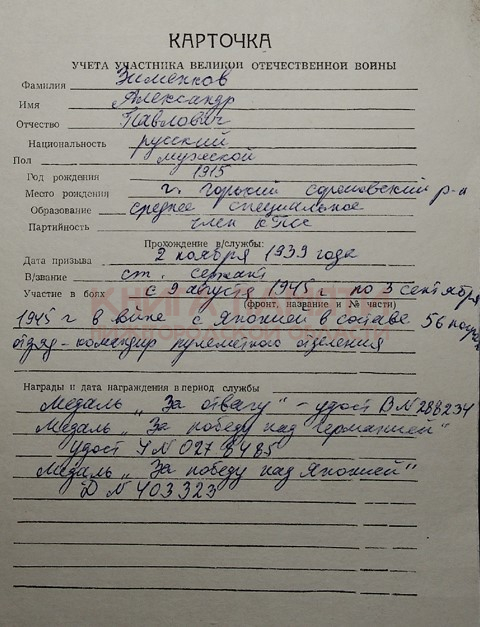 КАРТОЧКА
УЧЕТА УЧАСТНИКА ВЕЛИКОЙ ОТЕЧЕСТВЕННОЙ ВОЙНЫ
Фамилия Зименков
Имя Александр
Отчество Павлович
Национальность русский
Пол мужской
Год рождения 1915
Место рождения г. Горький Сормовский р-н
Образование среднее специальное
Партийность член КПСС
Прохождение в/службы:
Дата призыва 2 ноября 1939 года
В/звание ст. сержант
Участие в боях с 9 августа 1945 по 3 сентября
(фронт, название и № части)
КНИГА ПАМЯТИ
НИЖЕГОРОДСКОЙ ОБЛАСТИ
1945 г в войне с Японией в составе 56
отряд - командир пулеметного отделения
Награды и дата награждения в период службы
Медаль „За отвагу" - удост В N 288234
Медаль „За победу над Германией"
удост У N 0278485
Медаль „За победу над Японией"
Д N 403323